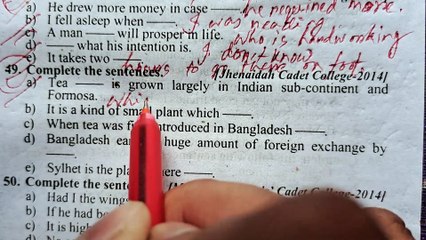 a) He drew more money in case — he required more.
b) I fell asleep when —. I was neatli
c) A man — will prosper in life. who is hardworking
d) — what his intention is. I don't know
e) It takes two — times to go there on foot.
49. Complete the sentences. [Jhenaidah Cadet College-2014]
a) Tea — is grown largely in Indian sub-continent and
Formosa. whi
b) It is a kind of small plant which —.
c) When tea was introduced in Bangladesh —.
d) Bangladesh huge amount of foreign exchange by
—.
e) Sylhet is the here —.
50. Complete the Cadet College-2014]
a) Had I the
b) If he had
c) It is
d)